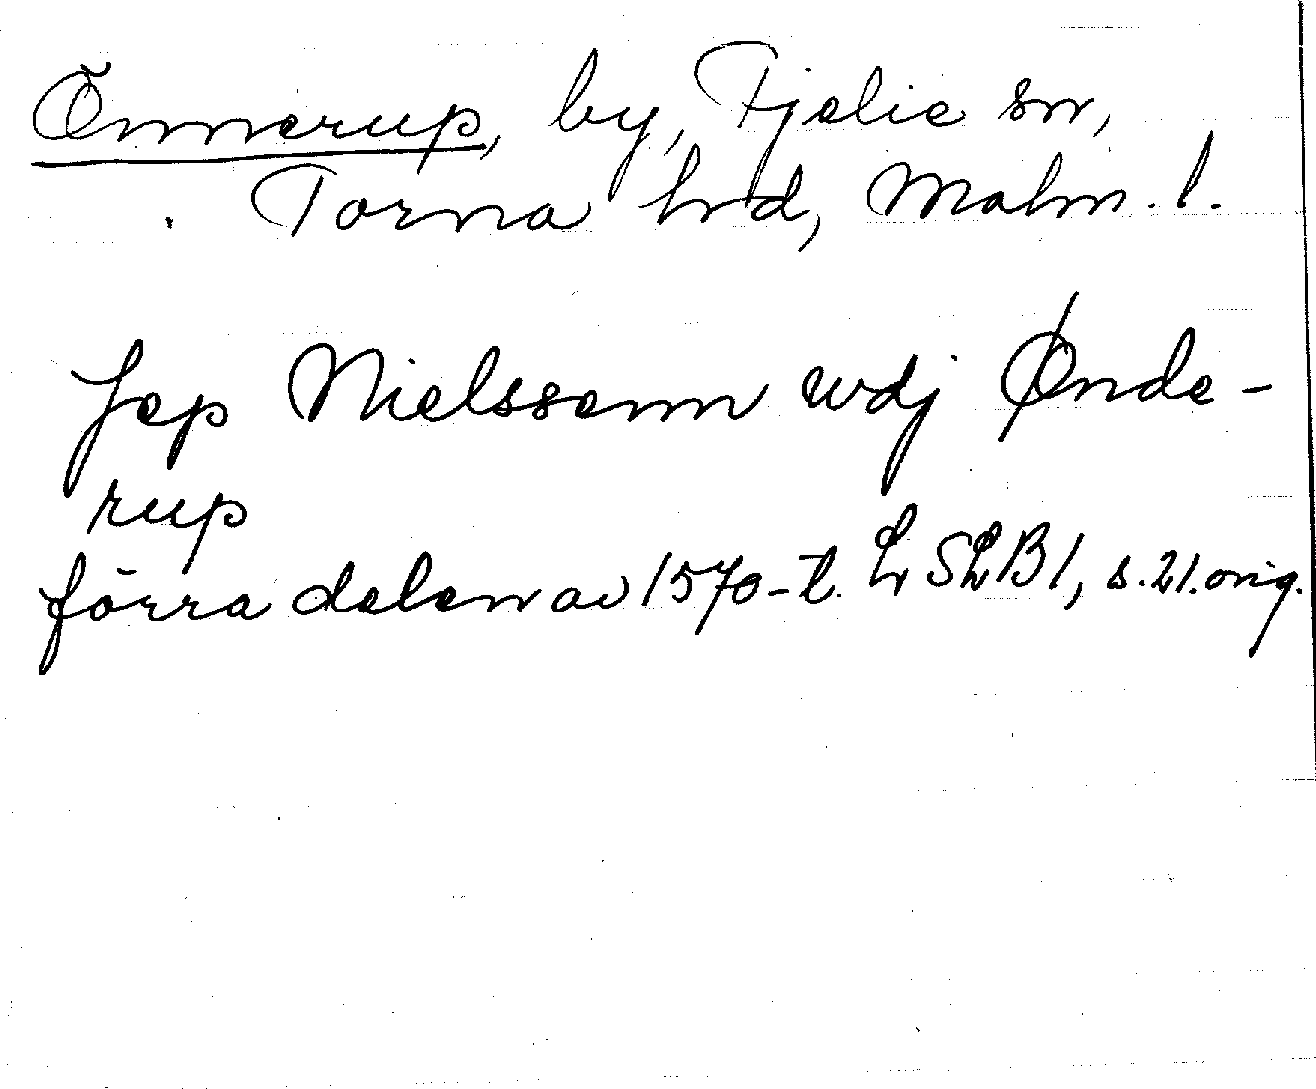 Önnerup, by, Fjelie sn,
Torna hrd, Malm. l.
Jep Nielssenn wdj Ønde-
rup
förra delen av 1570-t. LSLB1, s.21.orig.